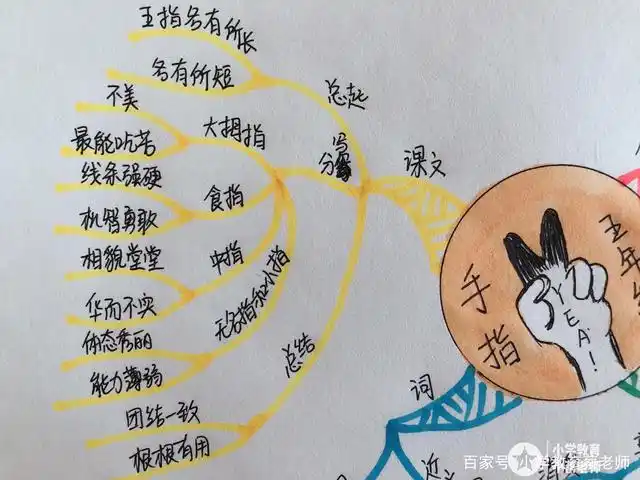 五指各有所长
各有所短
总起
不美
最能吃苦
大拇指
线条强硬
机智勇敢
食指
相貌堂堂
华而不实
中指
体态秀丽
能力薄弱
无名指和小指
分写
团结一致
根根有用
总结
课文
手指
五年
YEA!
词
近
百家号/小学教育蔡老师
小学教育